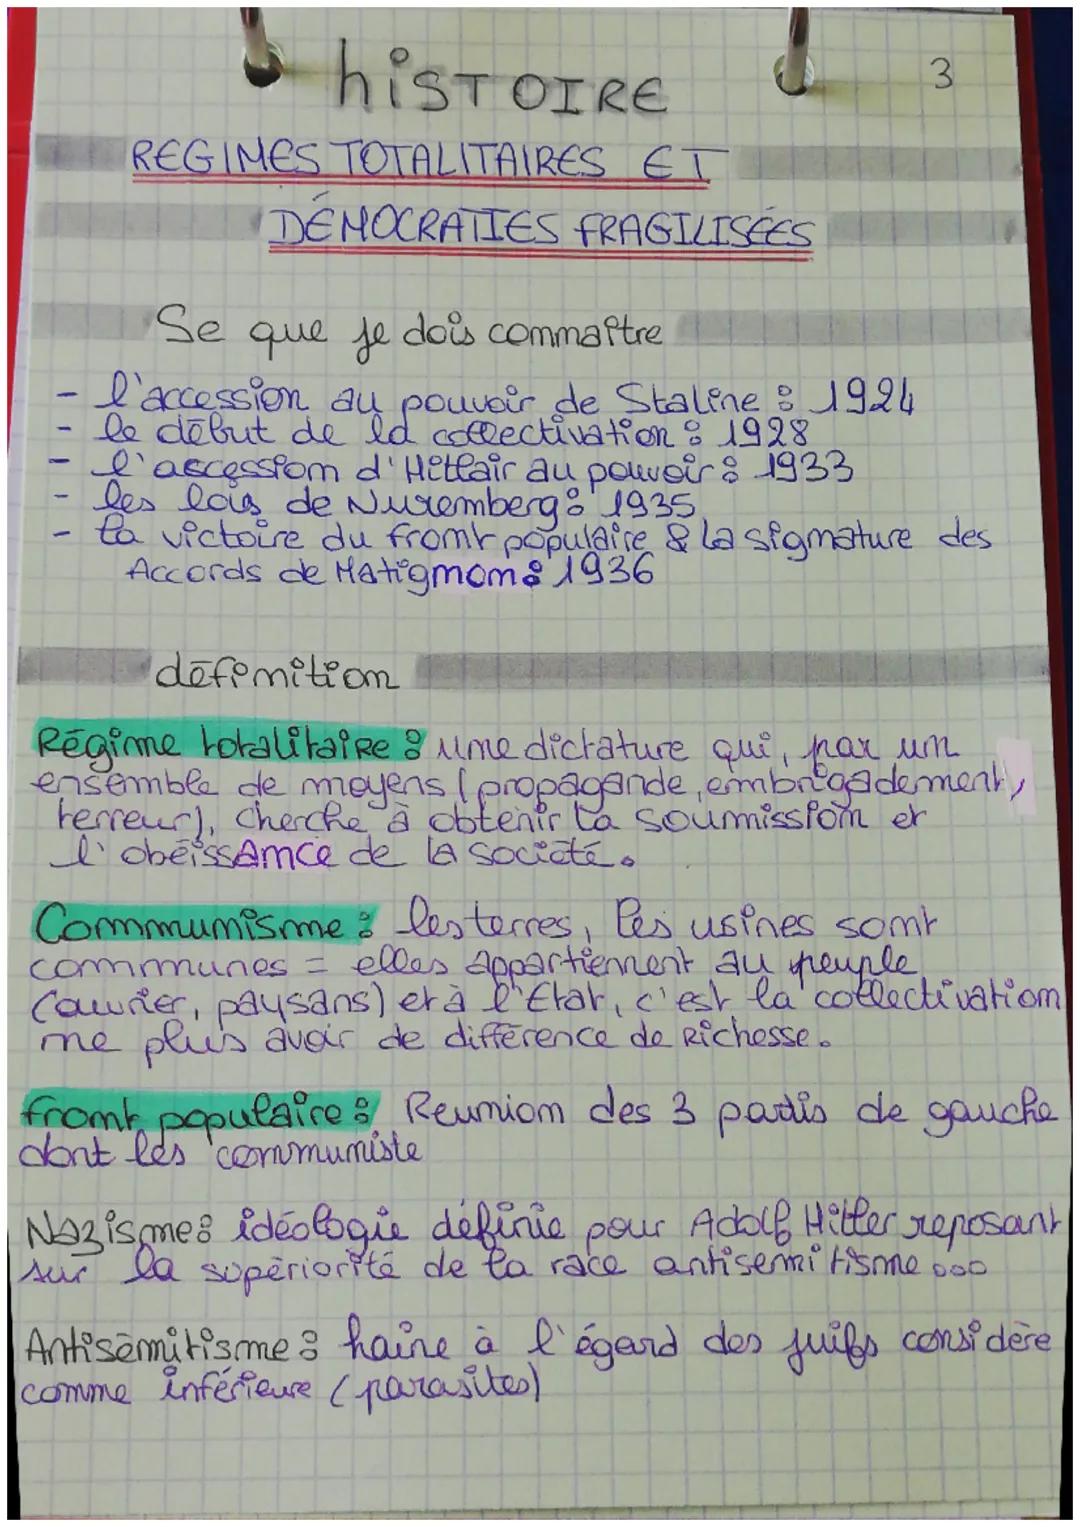 hiSTOIRE
3
REGIMES TOTALITAIRES ET
DÉMOCRATIES FRAGILISÉES
Se que je dois connaître
- l'accession au pouvoir de Staline : 1924
- le début de la collectivation : 1928
- l'accession d'Hitlair au pouvoir : 1933
- les lois de Nuremberg : 1935
- la victoire du front populaire & la signature des
Accords de Matignon : 1936
définition
Régime totalitaire : une dictature qui, par un
ensemble de moyens (propagande, embrigadement,
terreur), cherche à obtenir la soumission et
l'obéissance de la société.
Communisme : les terres, les usines sont
communes = elles appartiennent au peuple
(ouvrier, paysans) et à l'Etat, c'est la collectivation
ne plus avoir de différence de Richesse.
front populaire : Reunion des 3 partis de gauche
dont les communiste
Nazisme : idéologie définie pour Adolf Hitler reposant
sur la supériorité de la race antisemitisme ...
Antisémitisme : haine à l'égard des juifs considère
comme inférieure (parasites)